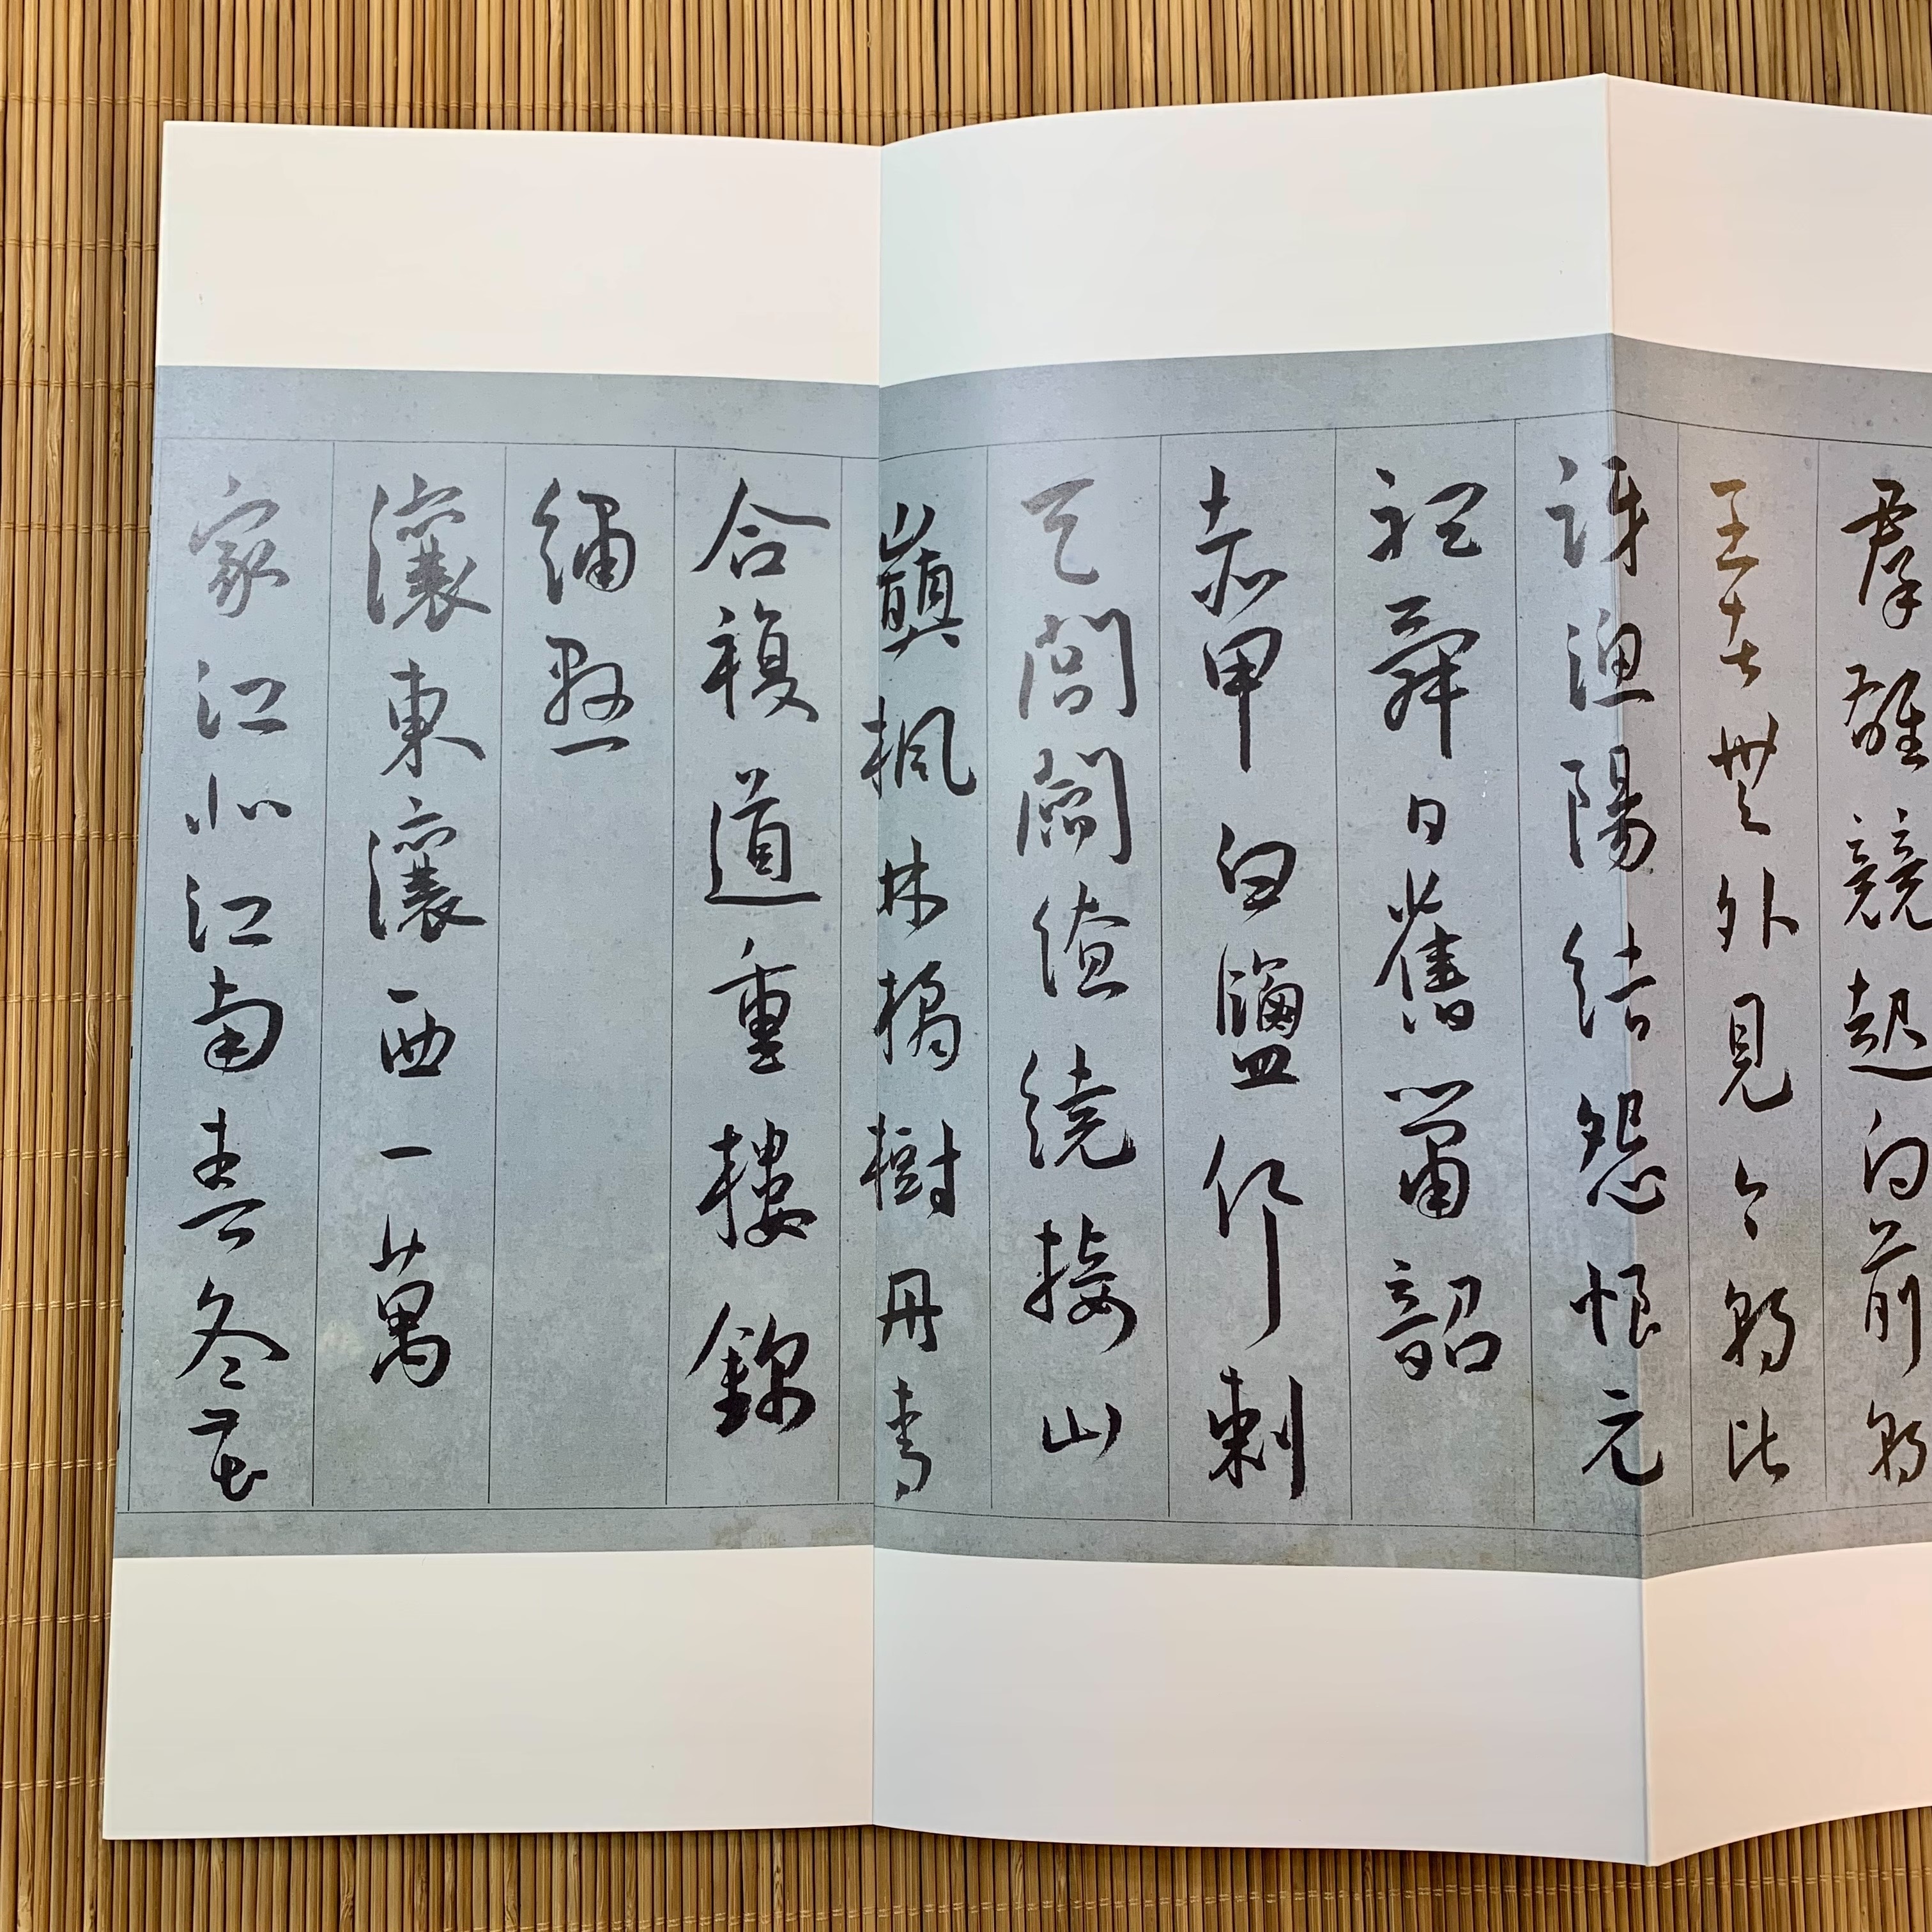 羣雄競起向前朝
王者無外見今朝比
訝漁陽結怨恨元
聽舜日舊簫韶
赤甲白鹽仰刺
天閭閻繚繞接山
巔楓林橘樹丹青
合複道重樓錦
繡懸
瀼東瀼西一萬
家江北江南春冬花